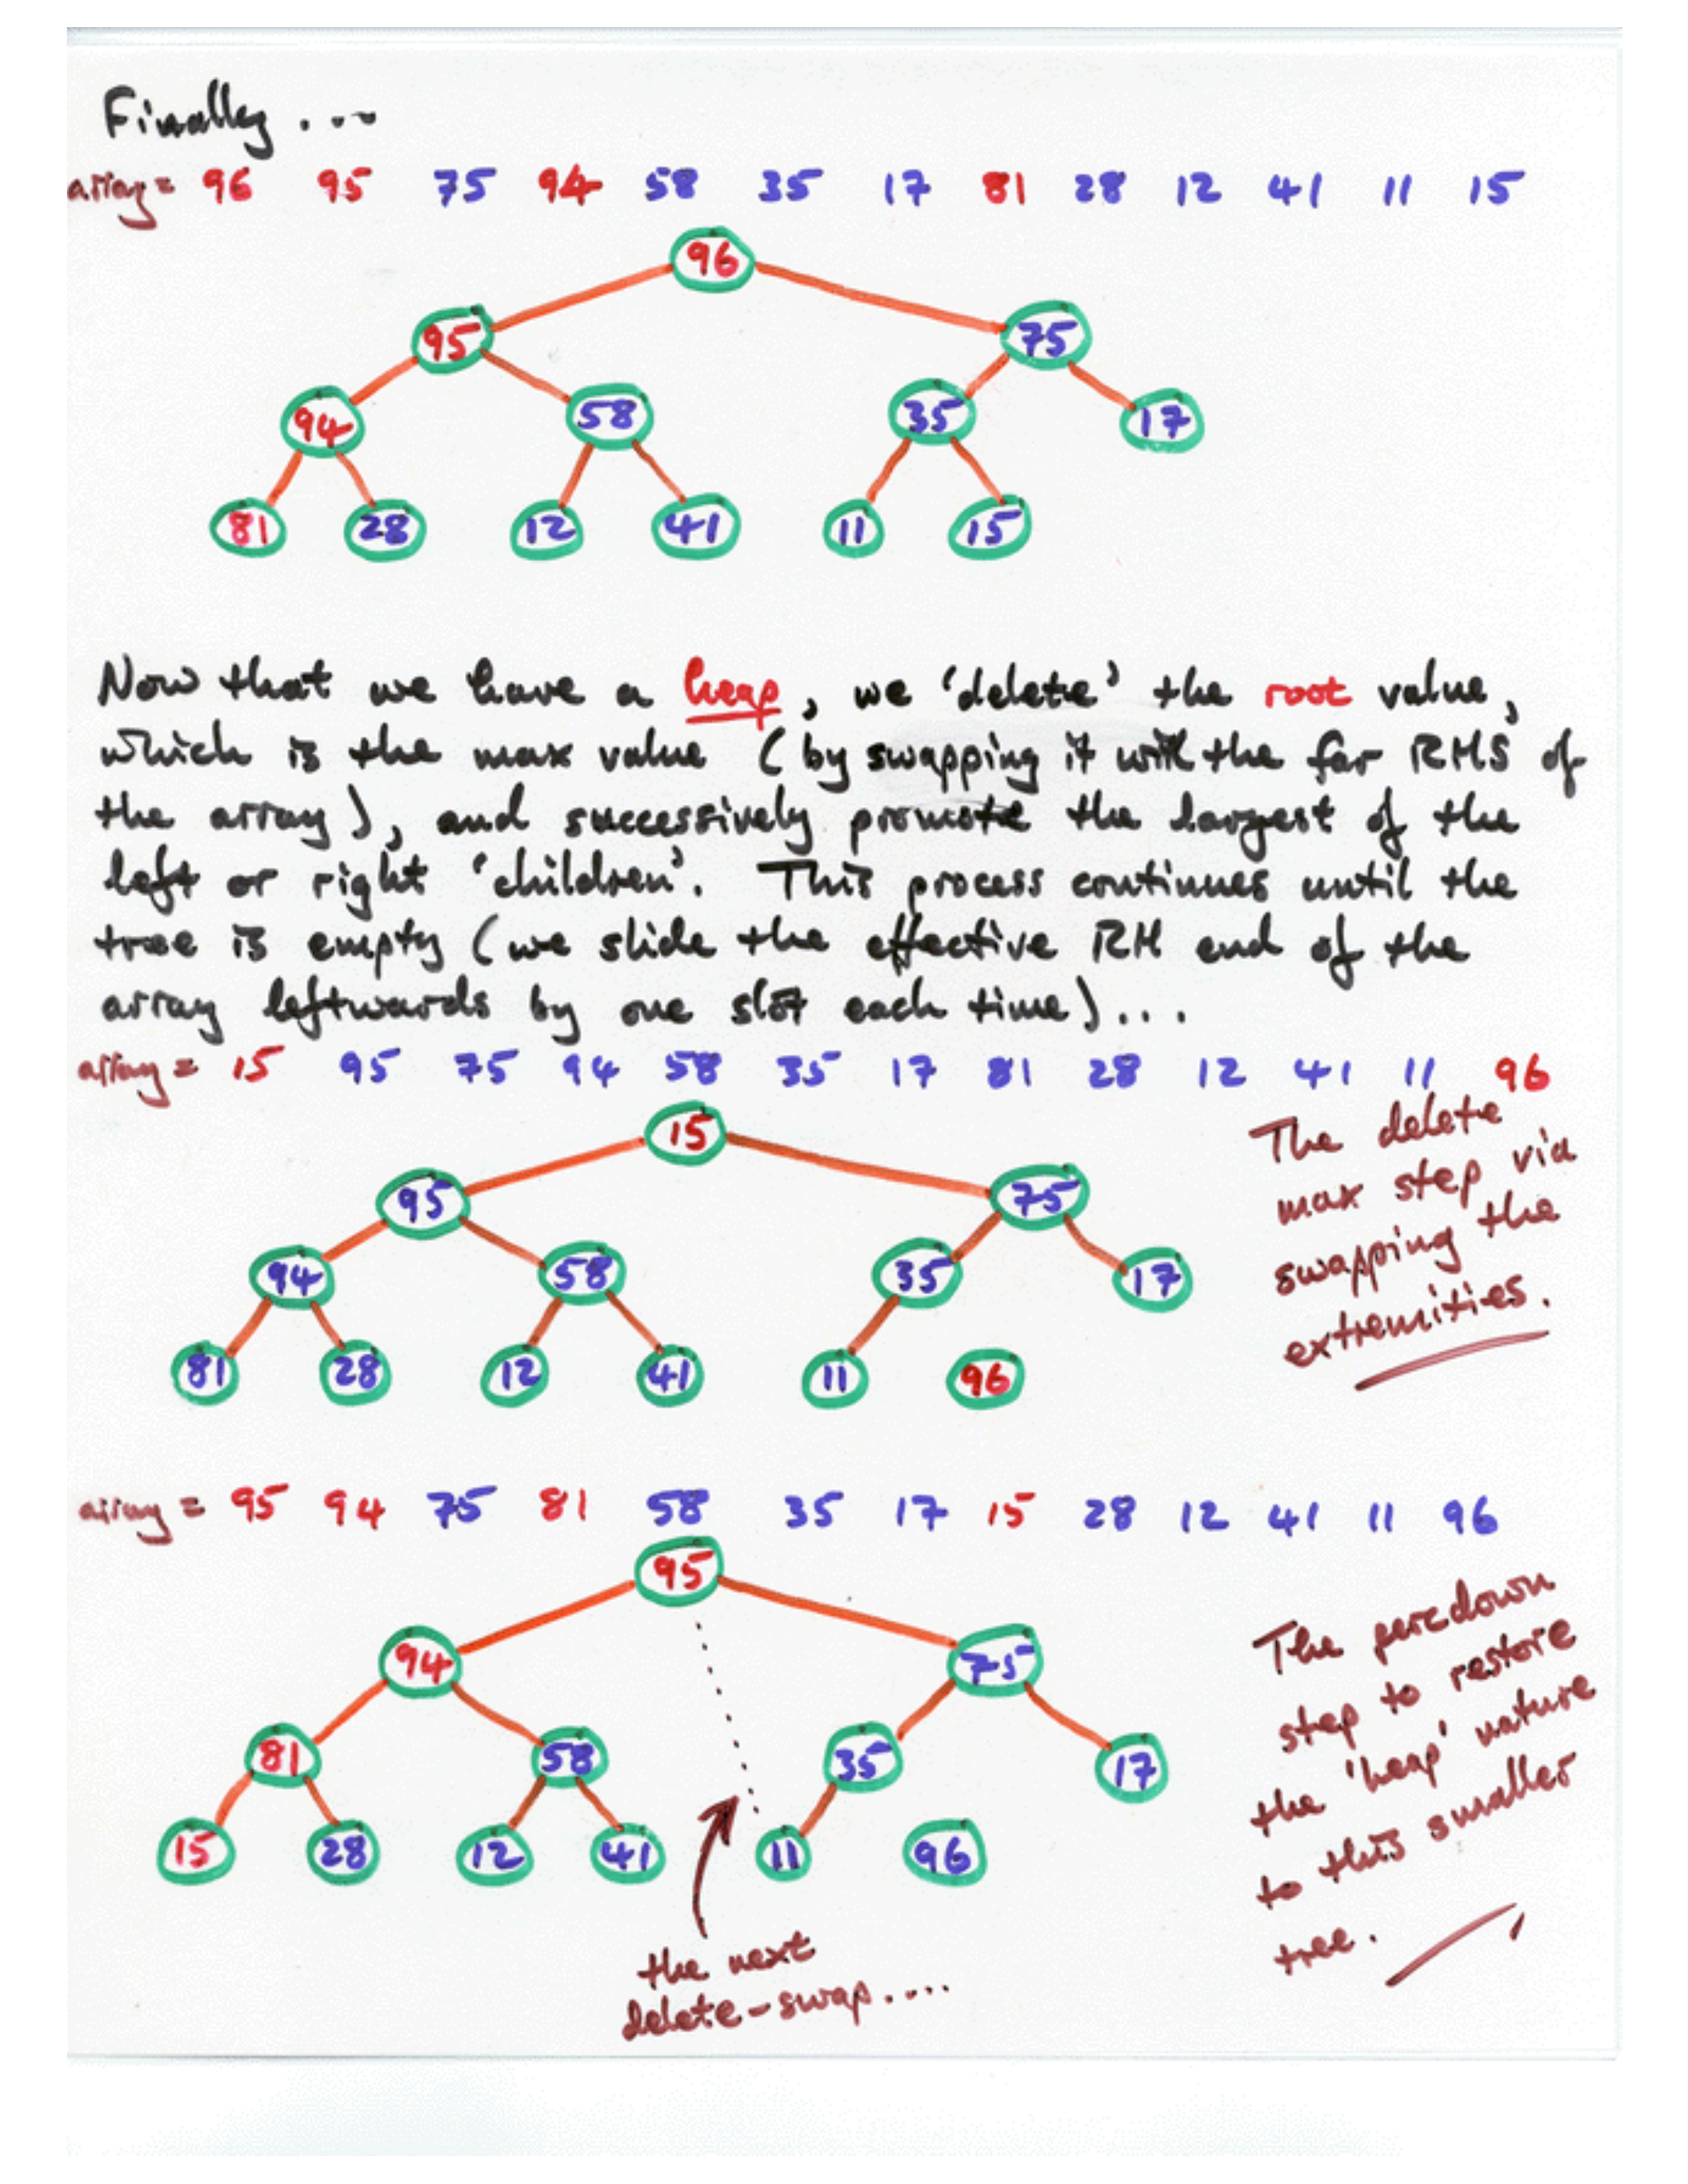 Finally ....
array = 96 95 75 94 58 35 17 81 28 12 41 11 15
96
95 75
94 58 35 17
81 28 12 41 11 15
Now that we have a heap, we 'delete' the root value,
which is the max value (by swapping it with the far RHS of
the array), and successively promote the largest of the
left or right 'children'. This process continues until the
tree is empty (we slide the effective RH end of the
array leftwards by one slot each time)...
array = 15 95 75 94 58 35 17 81 28 12 41 11 96
15
95 75
94 58 35 17
81 28 12 41 11 96
The delete
max step via
swapping the
extremities.
array = 95 94 75 81 58 35 17 15 28 12 41 11 96
95
94 75
81 58 35 17
15 28 12 41 11 96
The percdown
step to restore
the 'heap' nature
to this smaller
tree.
the next
delete-swap....